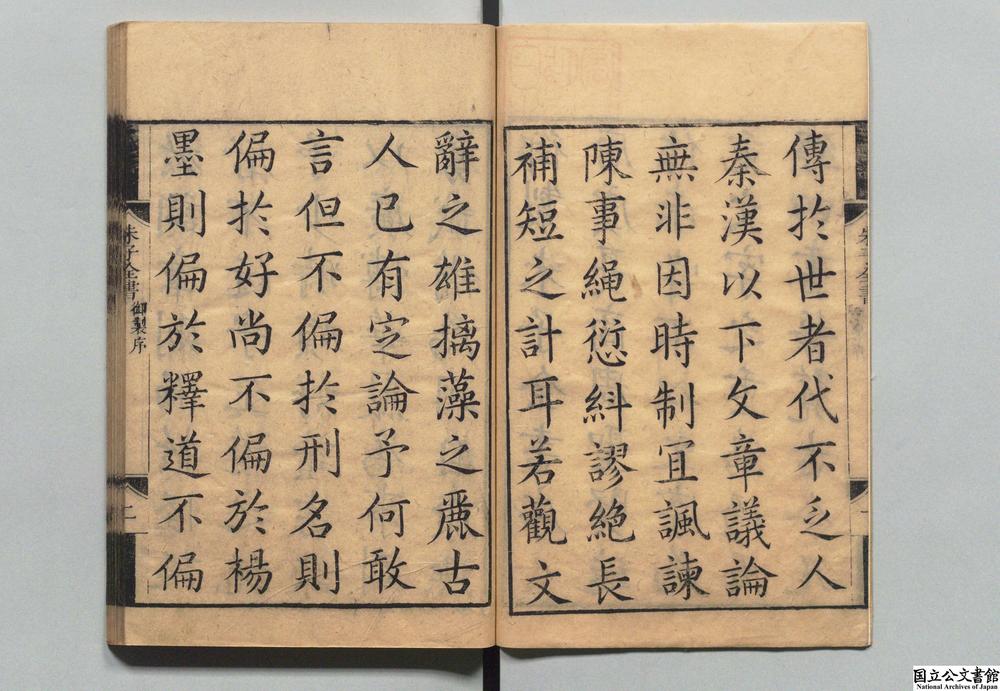 傳於世者代不乏人
秦漢以下文章議論
無非因時制冝諷諫
陳事繩愆糾謬絶長
補短之計耳若觀文
辭之雄摛藻之麗古
人已有定論予何敢
言但不偏於刑名則
偏於好尚不偏於楊
墨則偏於釋道不偏
朱子全書 御製序
二
国立公文書館
National Archives of Japan